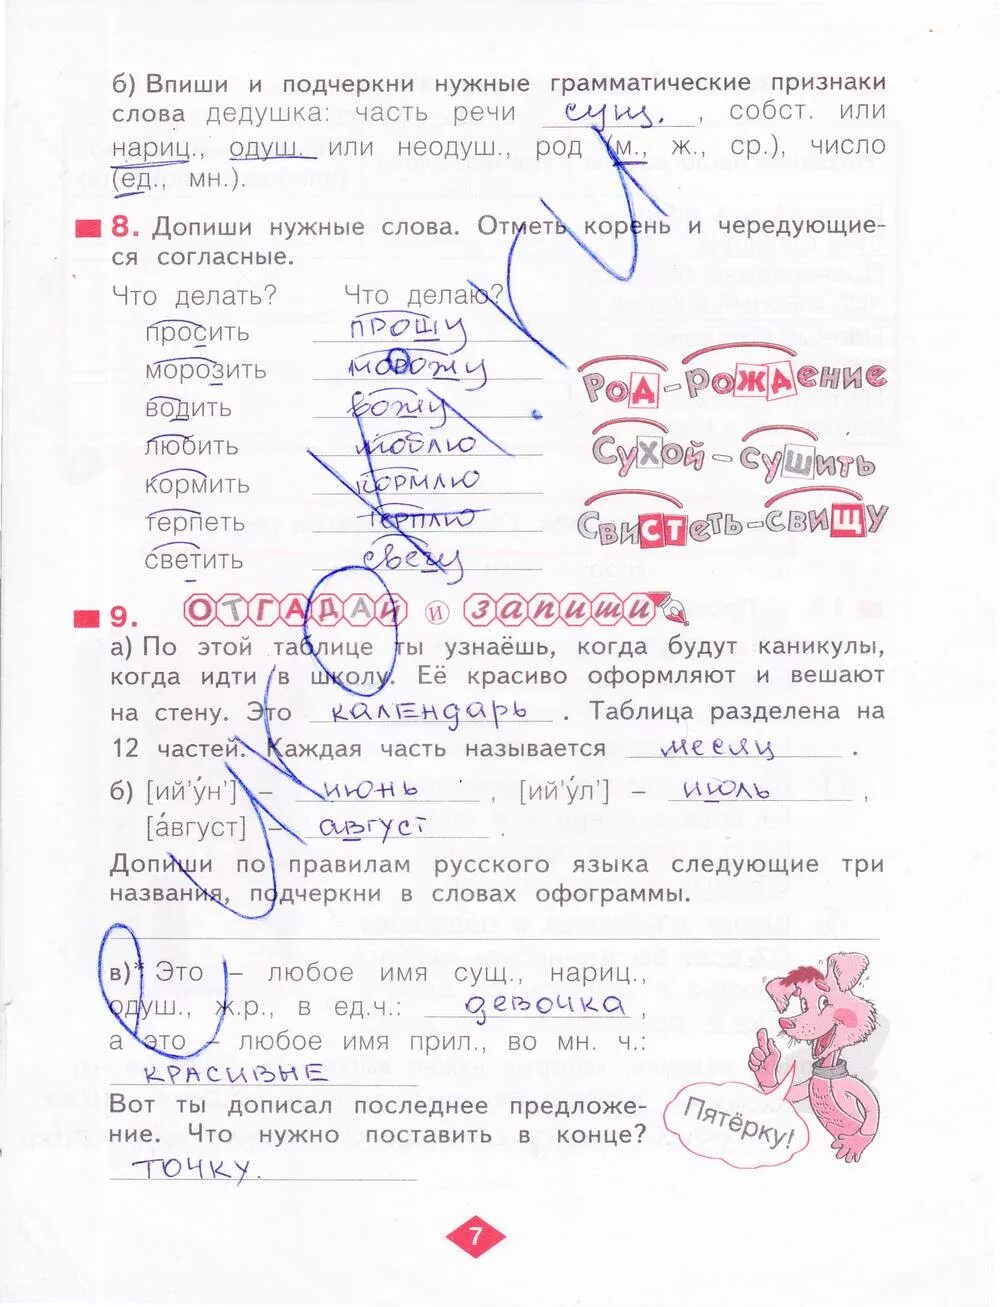 б) Впиши и подчеркни нужные грамматические признаки
слова дедушка: часть речи сущ. , собст. или
нариц., одуш. или неодуш., род (м., ж., ср.), число
(ед., мн.).
8. Допиши нужные слова. Отметь корень и чередующие-
ся согласные.
Что делать? Что делаю?
просить прошу
морозить морожу
водить вожу
любить люблю
кормить кормлю
терпеть терплю
светить свечу
Род – рождение
Сухой – сушить
Свистеть – свищу
9. ОТГАДАЙ и запиши
а) По этой таблице ты узнаёшь, когда будут каникулы,
когда идти в школу. Её красиво оформляют и вешают
на стену. Это календарь . Таблица разделена на
12 частей. Каждая часть называется месяц .
б) [ий'у́н'] – июнь , [ий'у́л'] – июль ,
[а́вгуст] – август .
Допиши по правилам русского языка следующие три
названия, подчеркни в словах офограммы.
в)* Это – любое имя сущ., нариц.,
одуш., ж.р., в ед.ч.: девочка ,
а это – любое имя прил., во мн. ч.:
красивые
Вот ты дописал последнее предложе-
ние. Что нужно поставить в конце?
точку.
Пятёрку!
7